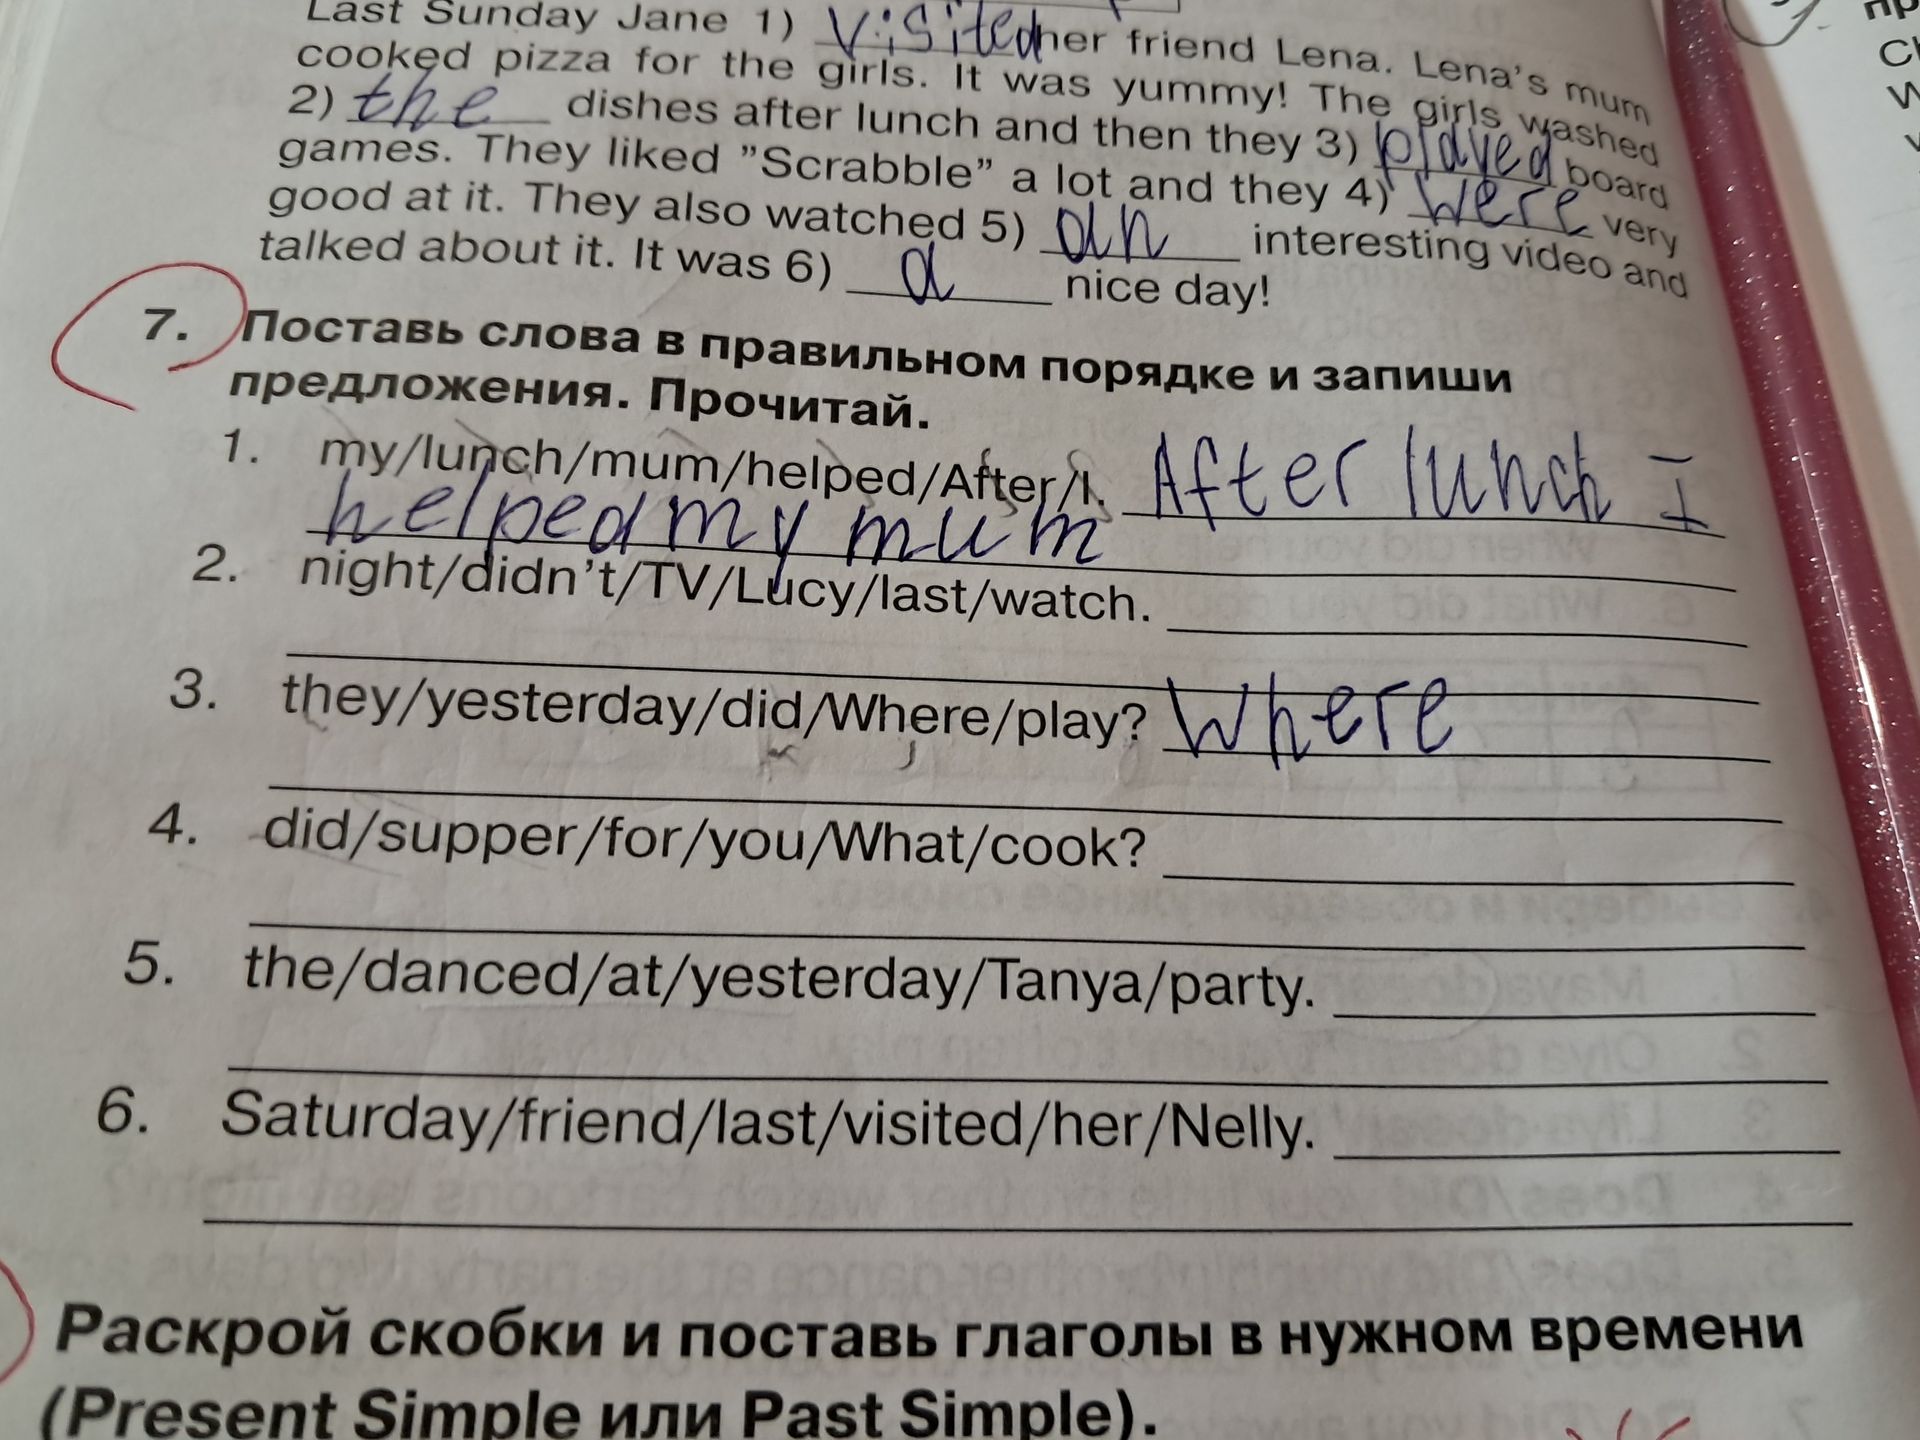 Last Sunday Jane 1) visited her friend Lena. Lena's mum
cooked pizza for the girls. It was yummy! The girls washed
2) the dishes after lunch and then they 3) played board
games. They liked "Scrabble" a lot and they 4) were very
good at it. They also watched 5) an interesting video and
talked about it. It was 6) a nice day!
7. Поставь слова в правильном порядке и запиши
предложения. Прочитай.
1. my/lunch/mum/helped/After/I. After lunch I
helped my mum
2. night/didn't/TV/Lucy/last/watch.
3. they/yesterday/did/Where/play? Where
4. did/supper/for/you/What/cook?
5. the/danced/at/yesterday/Tanya/party.
6. Saturday/friend/last/visited/her/Nelly.
Раскрой скобки и поставь глаголы в нужном времени
(Present Simple или Past Simple).